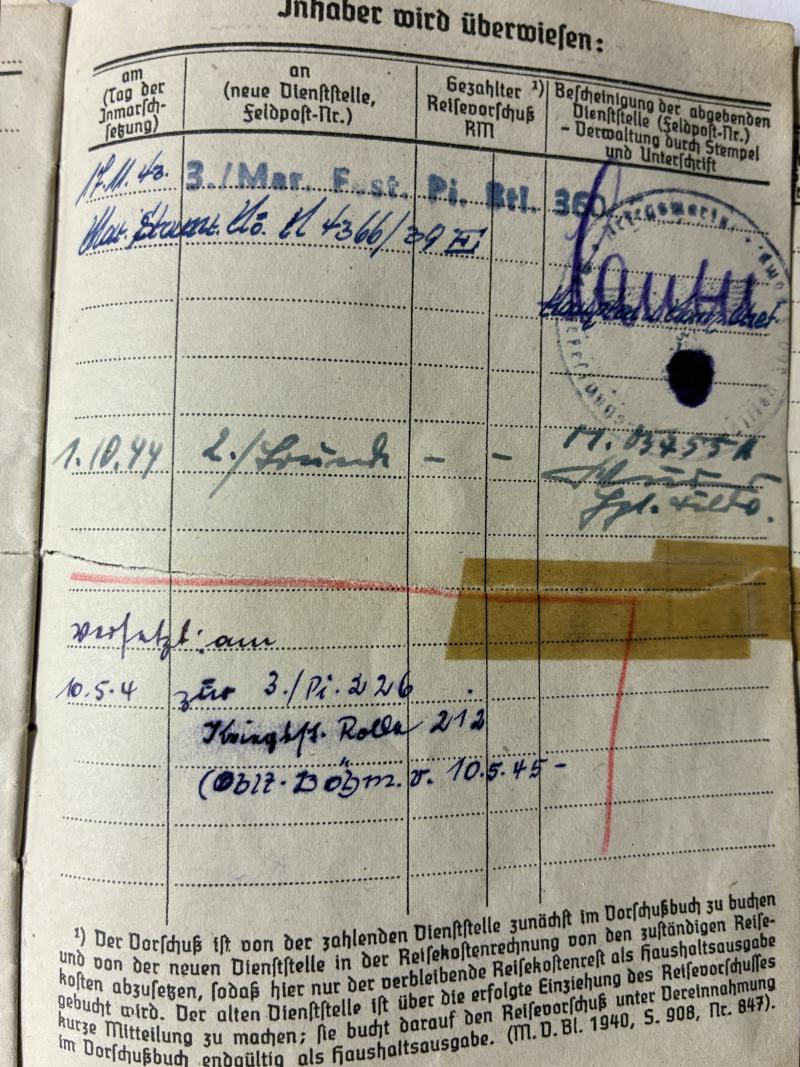 Inhaber wird überwiesen:
am
(Tag der
Inmarsch-
setzung)
an
(neue Dienststelle,
Feldpost-Nr.)
Gezahlter ¹)
Reisevorschuß
RM
Bescheinigung der abgebenden
Dienststelle (Feldpost-Nr.)
– Verwaltung durch Stempel
und Unterschrift
17.11.43. 3./Mar. Fest. Pi. Btl. 360
N 4366/39
1.10.44 2./ – – M. 03755A
versetzt: am
10.5.4 zur 3./Pi. 226
212
v. 10.5.45 -
¹) Der Vorschuß ist von der zahlenden Dienststelle zunächst im Vorschußbuch zu buchen
und von der neuen Dienststelle in der Reisekostenrechnung von den zuständigen Reise-
kosten abzusetzen, sodaß hier nur der verbleibende Reisekostenrest als Haushaltsausgabe
gebucht wird. Der alten Dienststelle ist über die erfolgte Einziehung des Reisevorschusses
kurze Mitteilung zu machen; sie bucht darauf den Reisevorschuß unter Vereinnahmung
im Vorschußbuch endgültig als Haushaltsausgabe. (M. D. Bl. 1940, S. 908, Nr. 847).